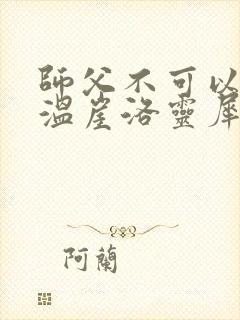 師父不可以
溫崖洛靈犀
阿蘭